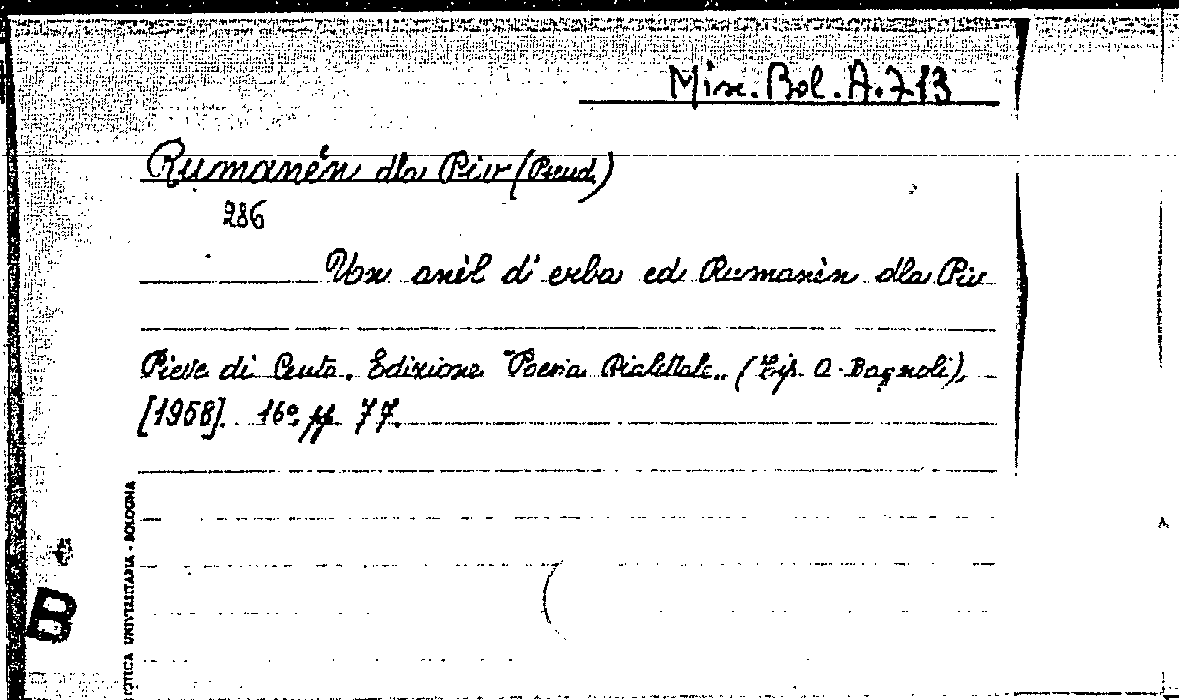 Misc. Bol. A. 713
Rumanèn dla Piv (Pseud.)
286
Un anèl d'erba ed Rumanèn dla Piv
Pieve di Cento. Edizione "Poesia Dialettale" (Tip. A. Bagnoli),
[1958]. 16° pp. 77.
OTECA UNIVERSITARIA - BOLOGNA
B